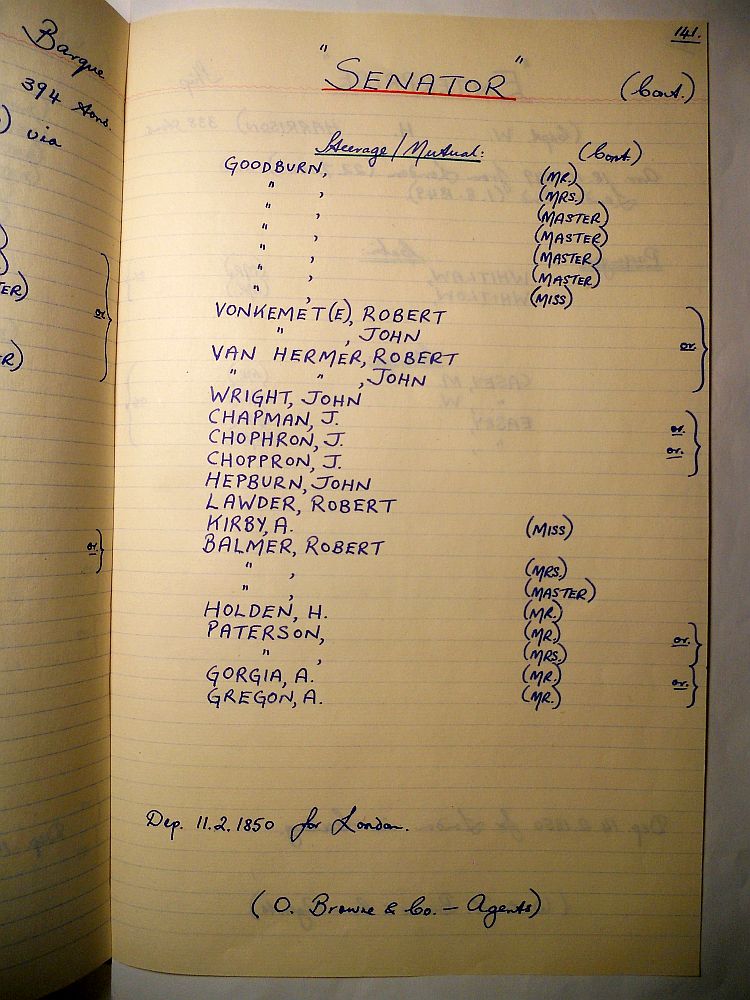 Barque
394 tons.
) via
ER)
or.
R)
or.
141.
"SENATOR" (Cont.)
Steerage/Mutual: (Cont.)
GOODBURN, (MR.)
" , (MRS.)
" , (MASTER)
" , (MASTER)
" , (MASTER)
" , (MASTER)
" , (MISS)
VONKEMET(E), ROBERT
" , JOHN or.
VAN HERMER, ROBERT
" " , JOHN
WRIGHT, JOHN
CHAPMAN, J. or.
CHOPHRON, J. or.
CHOPPRON, J.
HEPBURN, JOHN
LAWDER, ROBERT
KIRBY, A. (MISS)
BALMER, ROBERT
" , (MRS.)
" , (MASTER)
HOLDEN, H. (MR.)
PATERSON, (MR.) or.
" , (MRS.)
GORGIA, A. (MR.) or.
GREGON, A. (MR.)
Dep. 11.2.1850 for London.
(O. Browne & Co. — Agents)